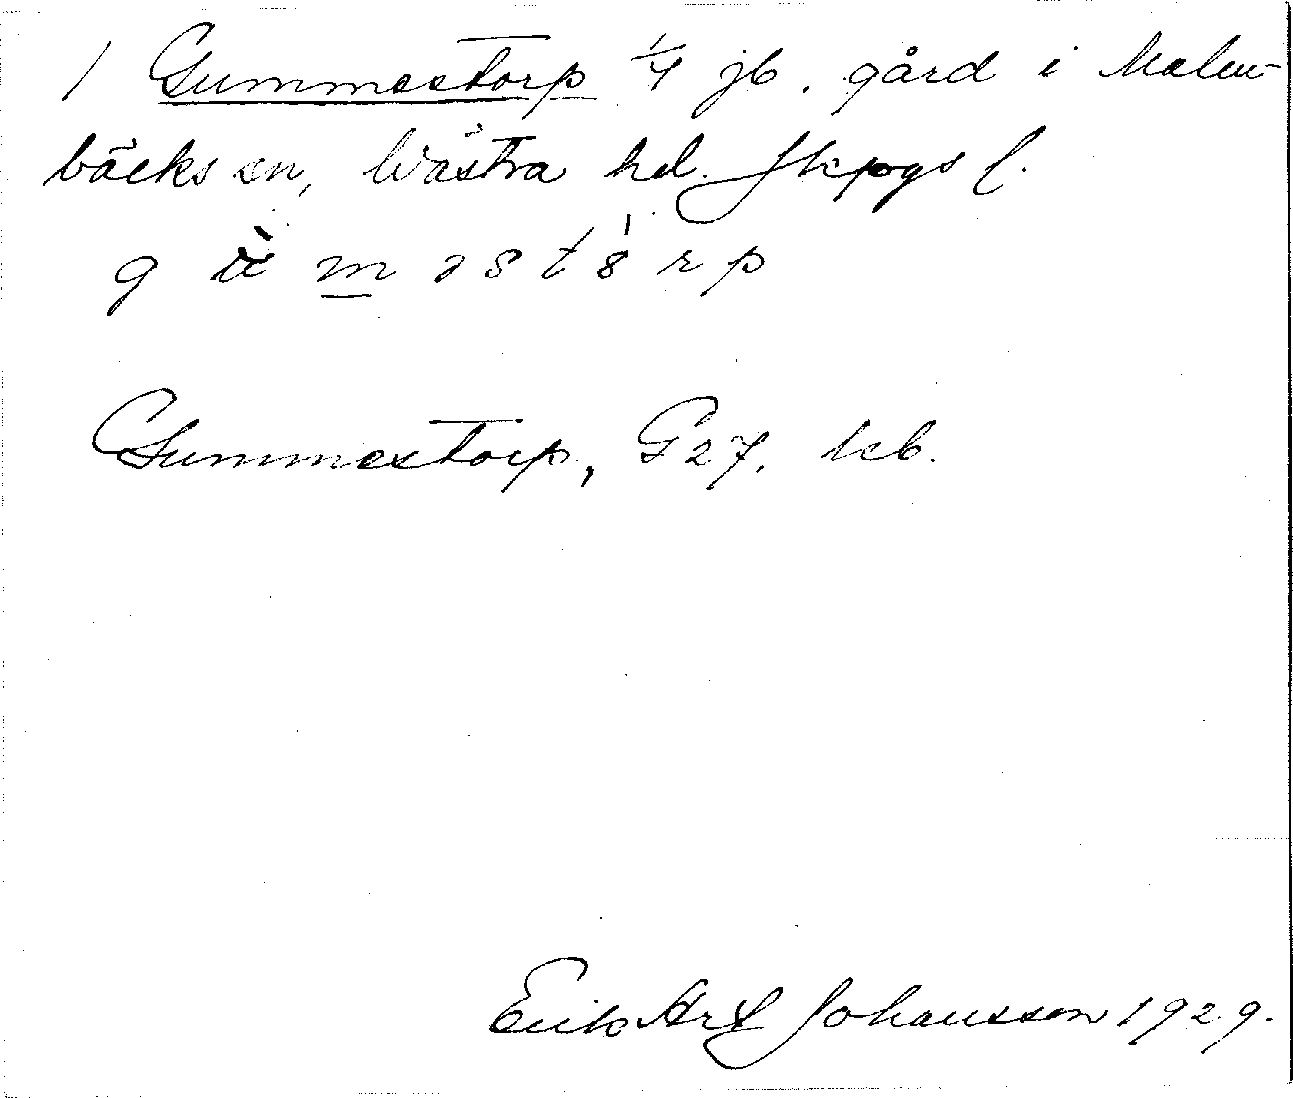 1 Gummestorp 1/4 jb. gård i Malm-
bäcks sn, Västra hd. Jkpgs l.
Gummestorp, G27, kb.
Erik Arf Johansson 1929.